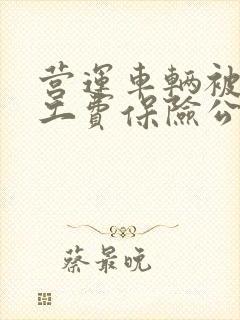 营運车辆被
工費保險公
蔡最晚